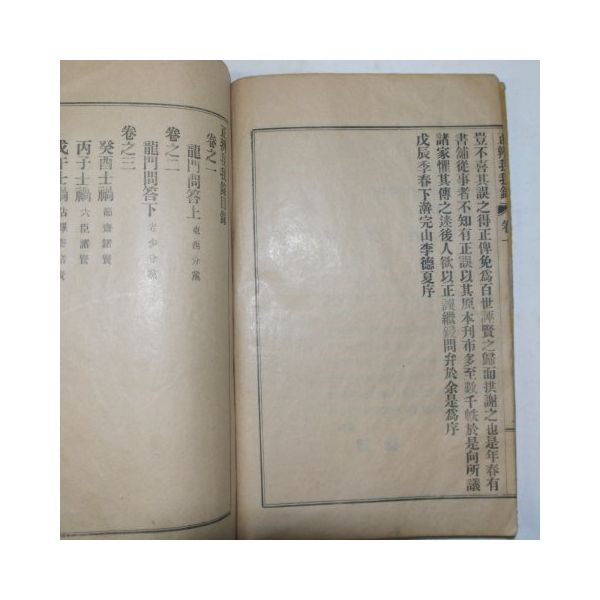 豈不喜其誤之得正俾免爲百世誣賢之歸而拱謝之也是年春有
書舖從事者不知有正誤以其原本刋布多至數千帙於是向所議
諸家懼其傳之迷後人欲以正誤繼錄問弁於余是爲序
戊辰季春下澣完山李德夏序
卷之一
龍門問答上 東西分黨
卷之二
龍門問答下 老少分黨
卷之三
癸酉士禍 節齋諸賢
丙子士禍 六臣諸賢
戊午士禍